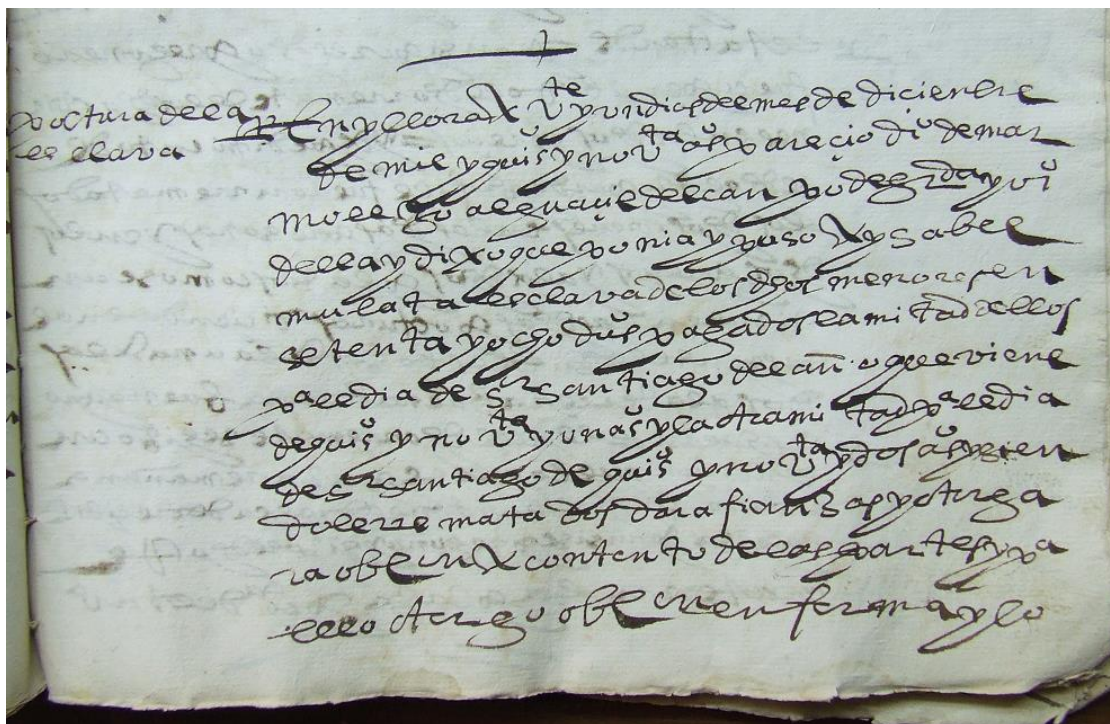 postura de la
esclava
En yllora a vte y un dias del mes de diciembre
de mill y quis y novta as pareçio diº de mar
molejo alguacil del canpo de grda y vº
della y dixo que ponia y puso a ysabel
mulata esclava de los dhos menores en
setenta y ocho dus pagados la mitad dellos
pª el dia de sr santiago del año que viene
de quis y novta y un as y la otra mitad pª el dia
de sr santiago de quis y novta y dos as y sien
dole rrematados dara fianzas y otorga
ra oblon a contento de las partes y pa
ello otorgo oblon en forma y lo